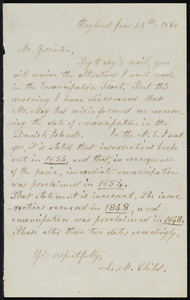 Wayland June 28th, 1860
Mr. Yerrinton,
By to-day's mail, you
will receive the alterations I wish made
in the Emancipation Tract. But this
morning I have discovered that
Mr. May has misinformed me concern-
ing the date of emancipation, in the
Danish Islands. In the M.S. I sent
you, it is stated that insurrections broke
out in 1854, and that in consequence
of the panic, immediate emancipation
was proclaimed in 1854.
That statement is incorrect. The insur-
rections occurred in 1848, and
emancipation was proclaimed in 1848.
Please alter these two dates accordingly.
Yrs respectfully,
L. M. Child.